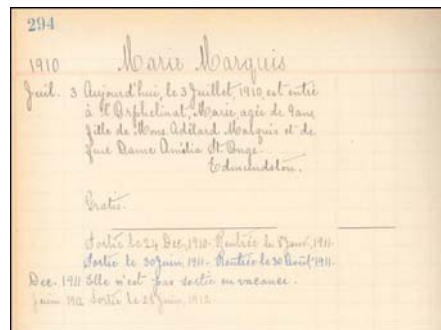 294
1910 Marie Marquis
Juil. 3 Aujourd'hui, le 3 Juillet 1910, est entrée
à l'Orphelinat, Marie, agée de 9 ans,
fille de Mons Adélard Marquis et de
feue Dame Amélia St. Onge.
Edmundston.
Gratis.
Sortie le 24 Dec, 1910. Rentrée le 8 Janv, 1911.
Sortie le 30 juin, 1911. Rentrée le 30 Août, 1911.
Dec. 1911 Elle n'est pas sortie en vacance.
Juin 1912 Sortie le 25 Juin, 1912.